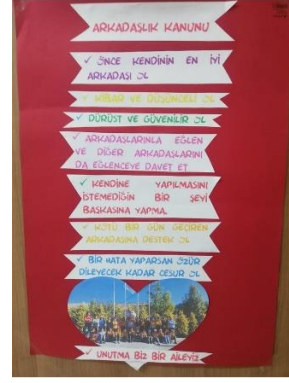 ARKADAŞLIK KANUNU
✓ ÖNCE KENDİNİN EN İYİ
ARKADAŞI OL
✓ KİBAR VE DÜŞÜNCELİ OL
✓ DÜRÜST VE GÜVENİLİR OL
✓ ARKADAŞLARINLA EĞLEN
VE DİĞER ARKADAŞLARINI
DA EĞLENCEYE DAVET ET
✓ KENDİNE YAPILMASINI
İSTEMEDİĞİN BİR ŞEYİ
BAŞKASINA YAPMA.
✓ KÖTÜ BİR GÜN GEÇİREN
ARKADAŞINA DESTEK OL
✓ BİR HATA YAPARSAN ÖZÜR
DİLEYECEK KADAR CESUR OL
✓ UNUTMA BİZ BİR AİLEYİZ